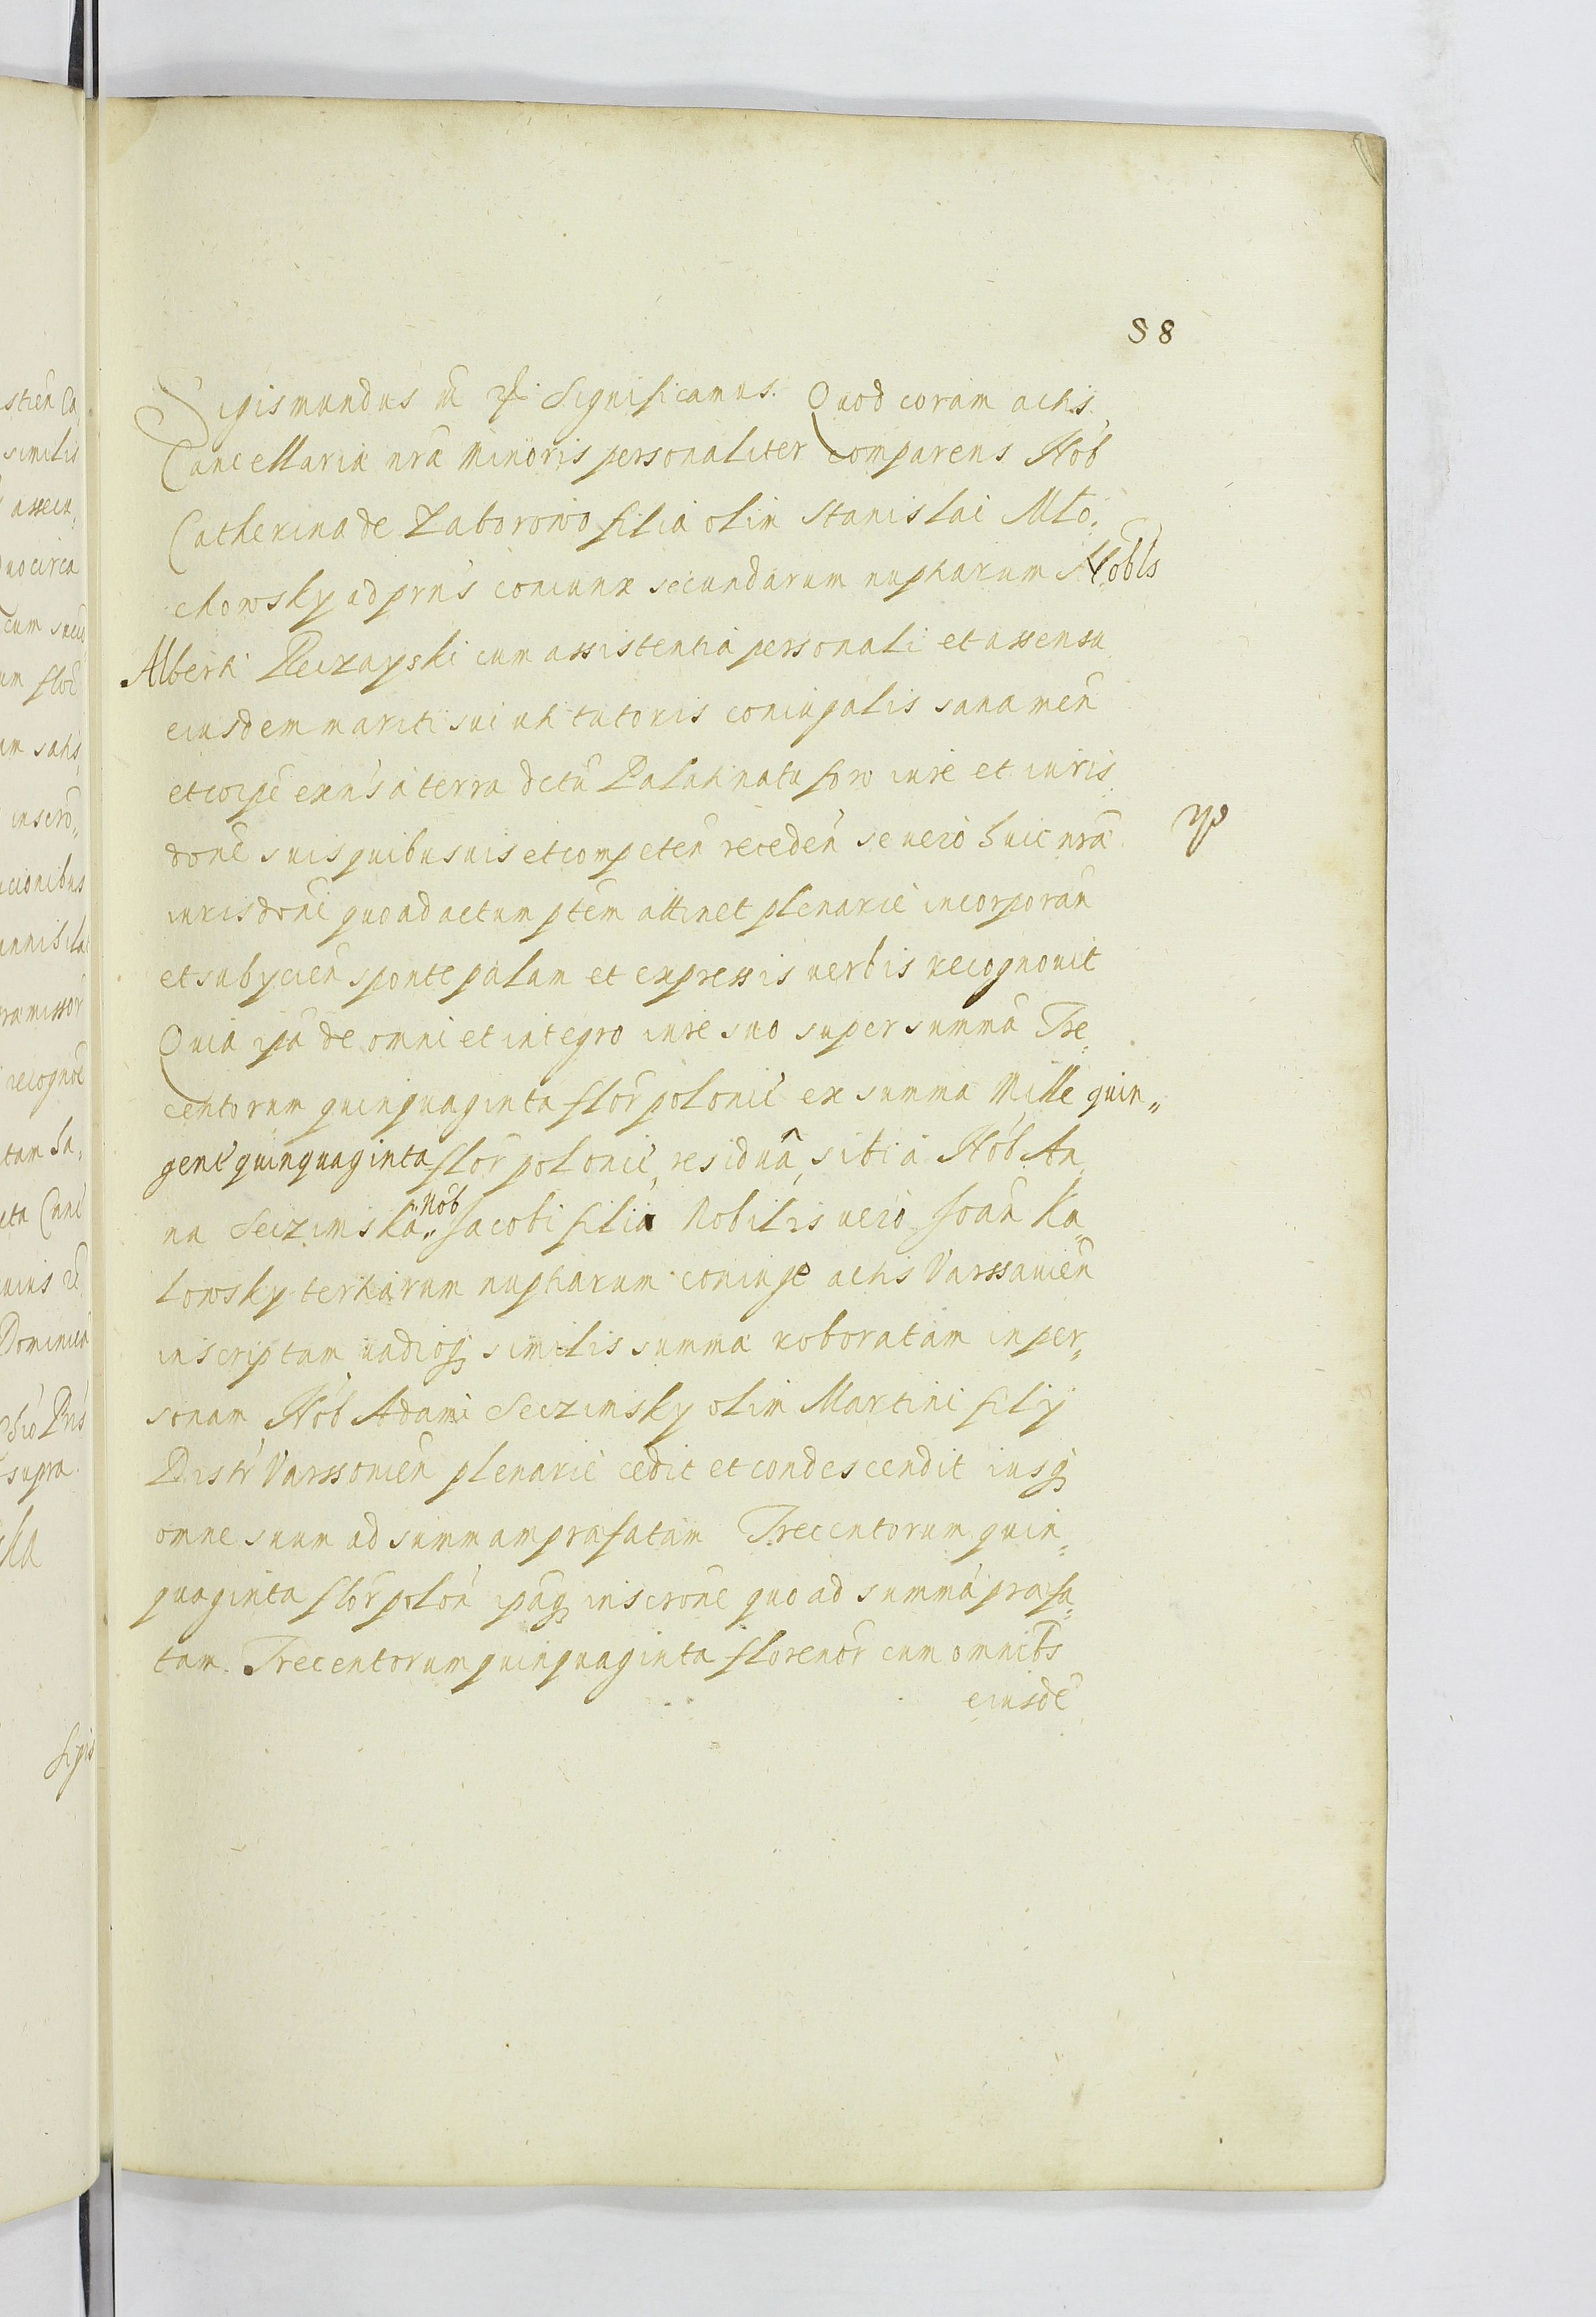 58
Sigismundus III etc. Significamus. Quod coram actis
Cancellariæ nrã Minoris personaliter comparens Nob
Catherina de Zaborowo filia olim Stanislai Mlo,
chowsky ad prns coniunx secundarum nuptiarum Nobls
Alberti cum assistentia personali et assensu
eiusdem mariti sui uti tutoris coniugalis sana men̄
et corpe exns à terra dctũ Palatinatu foro iure et iuris
donē suis quibusuis et competeñ recedeñ se vero huic nrã
iurisdonī quo ad actum ptem attinet plenarie incorporañ
et subycieñ sponte palam et expressis uerbis recognouit
Quia ipã de omni et integro iure suo super summã Tre,
centorum quinquaginta flor polonic ex summa Mille quin„
gent quinquaginta flor polonic, residuâ, sibi à Nob. An,
na Seczimska „Nob„ Jacobi filia Nobilis vero Joañ Ka,
lowsky tertiarum nuptiarum coniuge actis Varssauień
inscriptam uadioq similis summæ roboratam in per„
sonam Nob Adami Seczimsky olim Martini filij
Distr Varssouień plenarie cedit et condescendit iusq
omne suum ad summam præfatam Trecentorum quin„
quaginta flor polon ipãq inscrone quo ad summã præfa„
tam. Trecentorum quinquaginta florenor cum omnibs
eiusdē